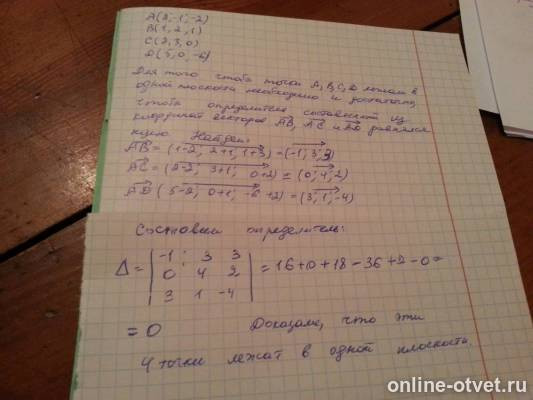 A(2,-1,-2)
B(1, 2, 1)
C(2, 3, 0)
D(5, 0, -6)
Для того чтобы точки A, B, C, D лежали в
одной плоскости необходимо и достаточно,
чтобы определитель составленный из
координат векторов AB, AC и AD равнялся
нулю. Найдем:
AB = (1-2; 2+1; 1+3) = (-1; 3; 3)
AC = (2-2; 3+1; 0+2) = (0; 4; 2)
AD (5-2; 0+1; -6+2) = (3; 1; -4)
Составим определитель:
Δ = | -1; 3 3 |
| 0 4 2 | = 16+0+18-36+2-0=
| 3 1 -4 |
= 0 Доказали, что эти
4 точки лежат в одной плоскости.
online-otvet.ru